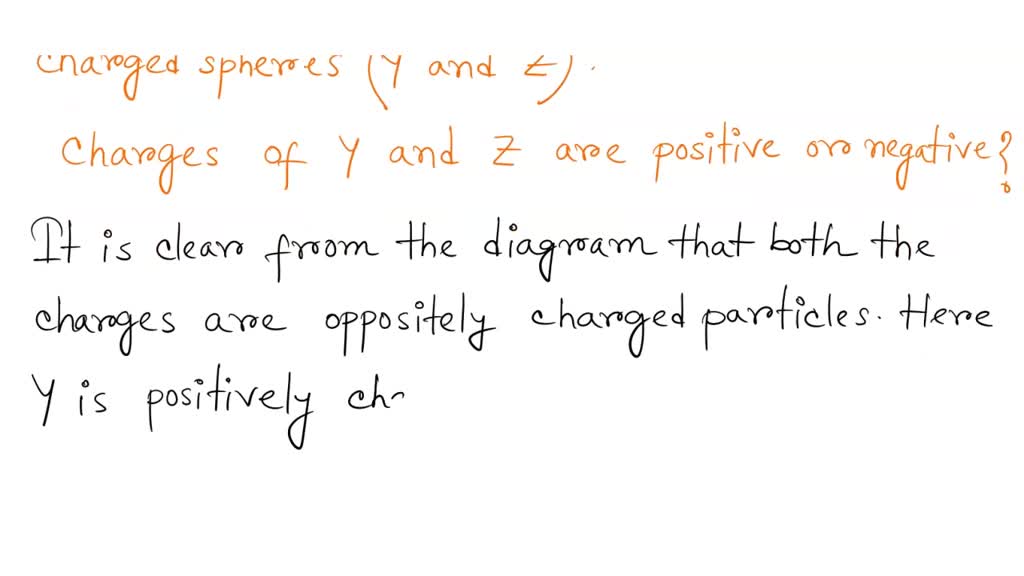 charged spheres (Y and Z).
Charges of Y and Z are positive or negative?
It is clear from the diagram that both the
charges are oppositely charged particles. Here
Y is positively ch